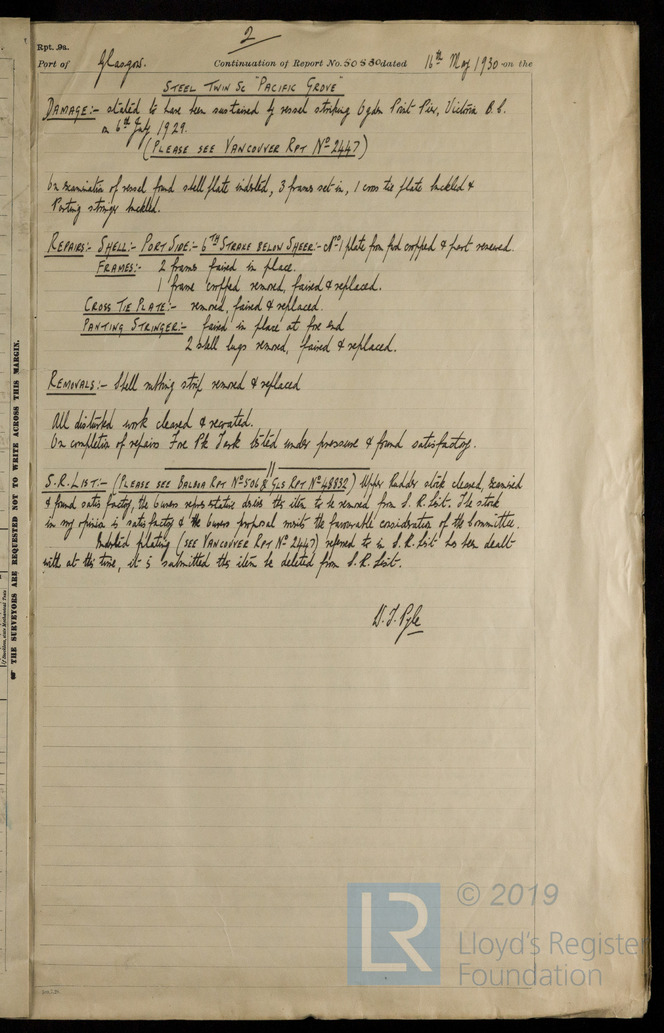 2
Rpt. 9a.
Port of Glasgow. Continuation of Report No. 50880 dated 16th May 1930 on the
STEEL TWIN SC "PACIFIC GROVE"
DAMAGE:- stated to have been sustained by vessel striking Ogden Point Pier, Victoria B.C.
on 6th July 1929.
(PLEASE SEE VANCOUVER RPT No 2447)
On examination of vessel found shell plate indented, 3 frames set in, 1 cross tie plate buckled &
Panting stringer buckled.
REPAIRS:- SHELL:- PORT SIDE:- 6TH STRAKE BELOW SHEER:- No 1 plate from fwd cropped & part renewed.
FRAMES:- 2 frames faired in place.
1 frame cropped removed, faired & replaced.
CROSS TIE PLATE:- removed, faired & replaced.
PANTING STRINGER:- faired in place at fore end
2 shell lugs removed, faired & replaced.
REMOVALS:- Shell rubbing strip removed & replaced
All disturbed work cleaned & recoated.
On completion of repairs Fore Pk Tank tested under pressure & found satisfactory.
S.R. LIST:- (PLEASE SEE BALBOA RPT No 506 & GLS RPT No 48832) Upper Rudder stock cleaned, examined
& found satisfactory, the Owners representative desires this item to be removed from S.R. List. The stock
in my opinion is satisfactory & the Owners proposal merits the favourable consideration of the Committee.
Indented plating (SEE VANCOUVER RPT No 2447) referred to in S.R. List has been dealt
with at this time, it is submitted this item be deleted from S.R. List.
W. J. Pyle
☞ THE SURVEYORS ARE REQUESTED NOT TO WRITE ACROSS THIS MARGIN.
© 2019
LR Lloyd's Register
Foundation